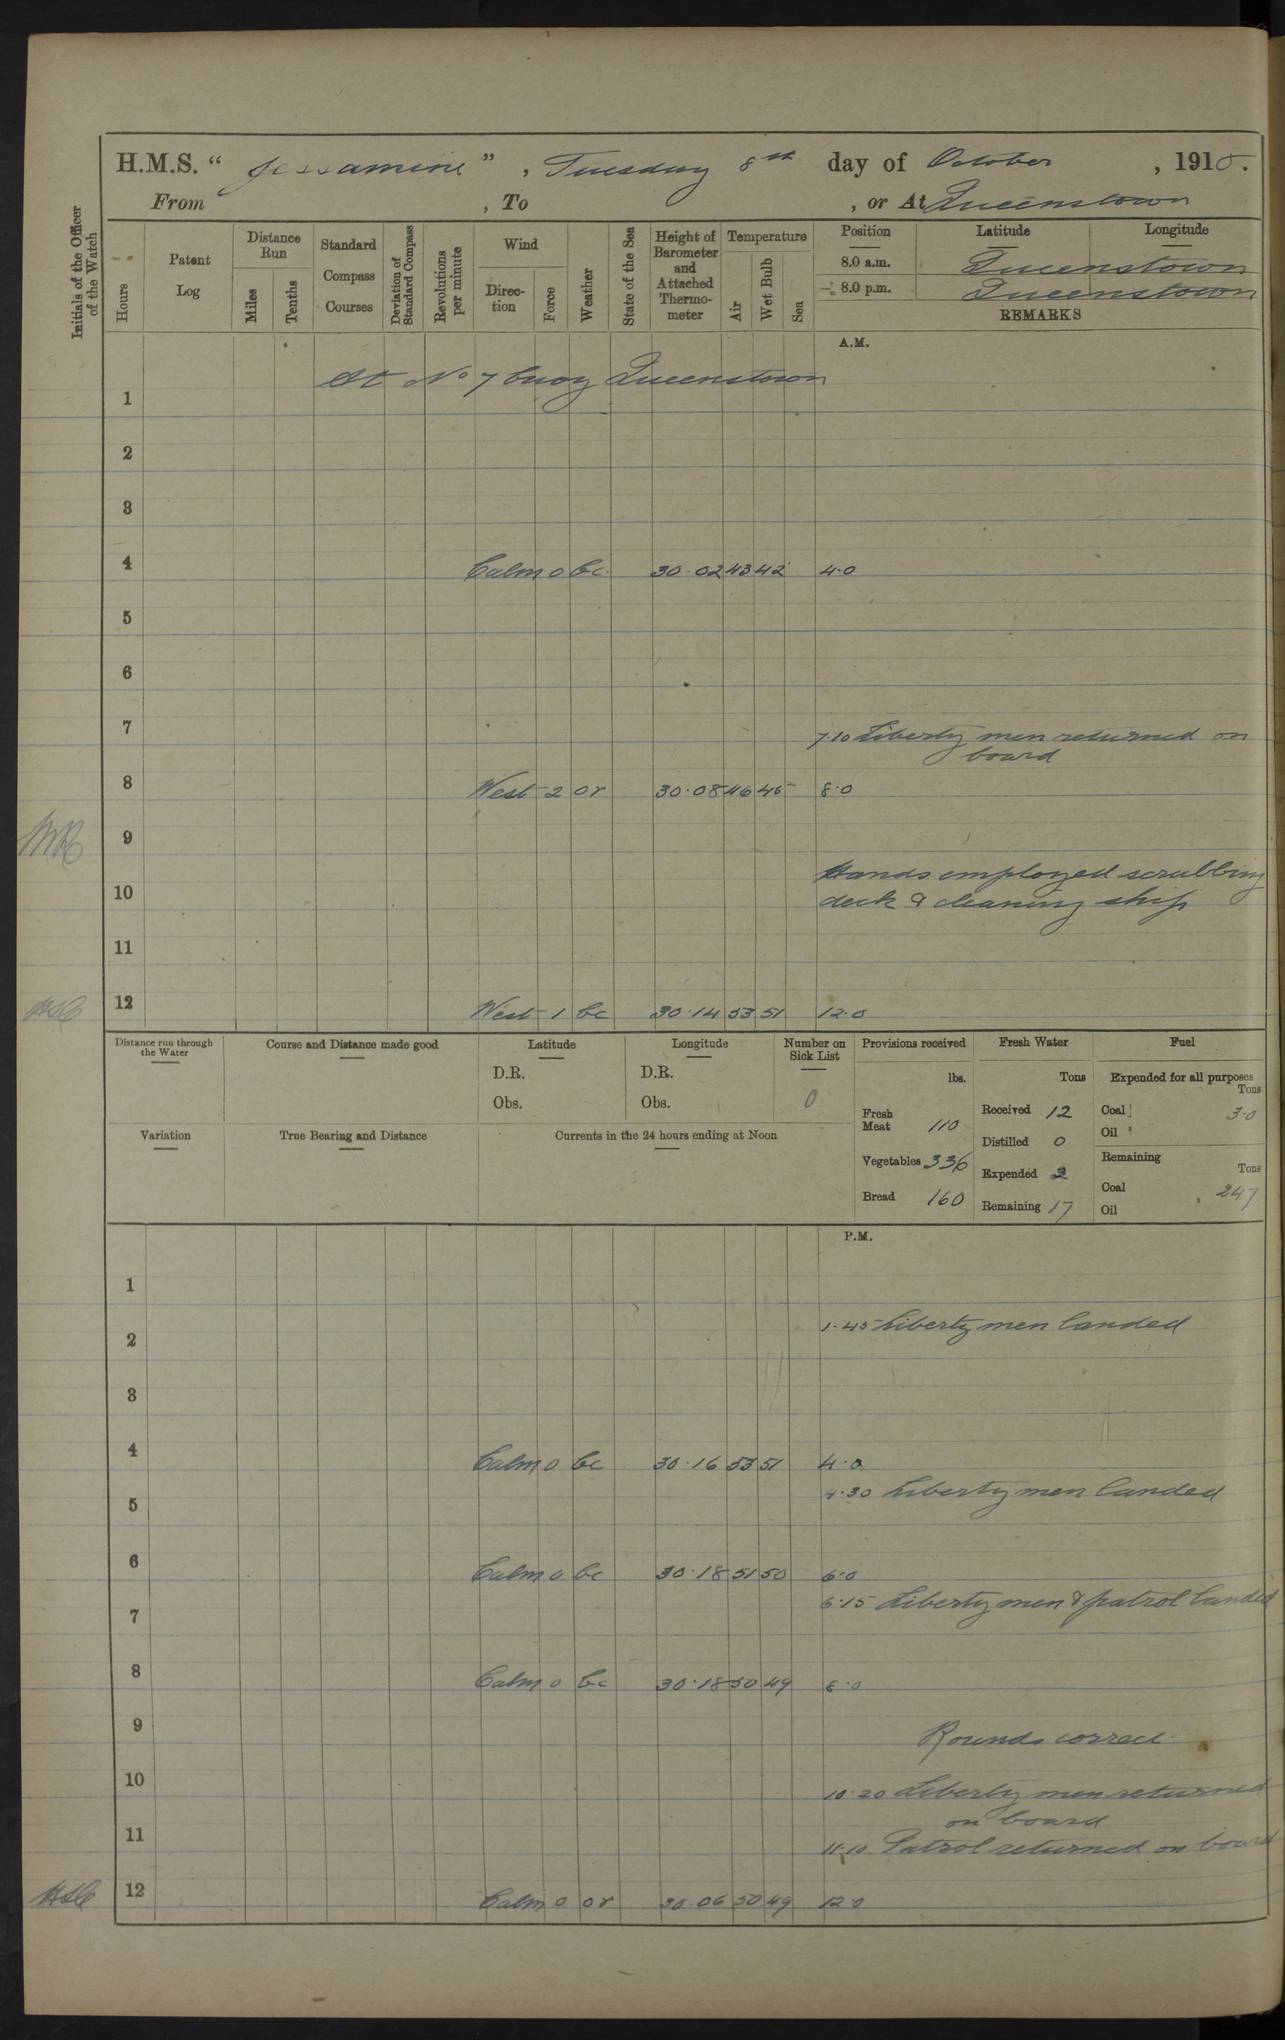 H.M.S. " Jessamine ", Tuesday 8th day of October, 1918.
From , To , or At Queenstown
Initials of the Officer of the Watch
Hours
Patent Log
Distance Run
Miles
Tenths
Standard Compass Courses
Deviation of Standard Compass
Revolutions per minute
Wind
Direction
Force
Weather
State of the Sea
Height of Barometer and Attached Thermometer
Temperature
Air
Wet Bulb
Sea
Position Latitude Longitude
8.0 a.m. Queenstown
8.0 p.m. Queenstown
REMARKS
A.M.
At No 7 buoy Queenstown
1
2
3
4 Calm 0 bc 30.02 43 42 4.0
5
6
7 7.10 Liberty men returned on
board
8 West 2 or 30.08 46 45 8.0
9
Hands employed scrubbing
10 deck & cleaning ship
11
12 West 1 bc 30.14 53 51 12.0
Distance run through the Water
Course and Distance made good
Latitude
D.R.
Obs.
Longitude
D.R.
Obs.
Number on Sick List
0
Variation
True Bearing and Distance
Currents in the 24 hours ending at Noon
Provisions received
lbs.
Fresh Meat 110
Vegetables 336
Bread 160
Fresh Water
Tons
Received 12
Distilled 0
Expended 2
Remaining 17
Fuel
Expended for all purposes
Tons
Coal 3.0
Oil
Remaining
Tons
Coal 247
Oil
P.M.
1
1.45 Liberty men landed
2
3
4 Calm 0 bc 30.16 53 51 4.0
4.30 Liberty men landed
5
6 Calm 0 bc 30.18 51 50 6.0
6.15 Liberty men & patrol landed
7
8 Calm 0 bc 30.18 50 49 8.0
9 Rounds correct
10 10.20 Liberty men returned
on board
11 11.10 Patrol returned on board
12 Calm 0 or 30.06 50 49 12.0